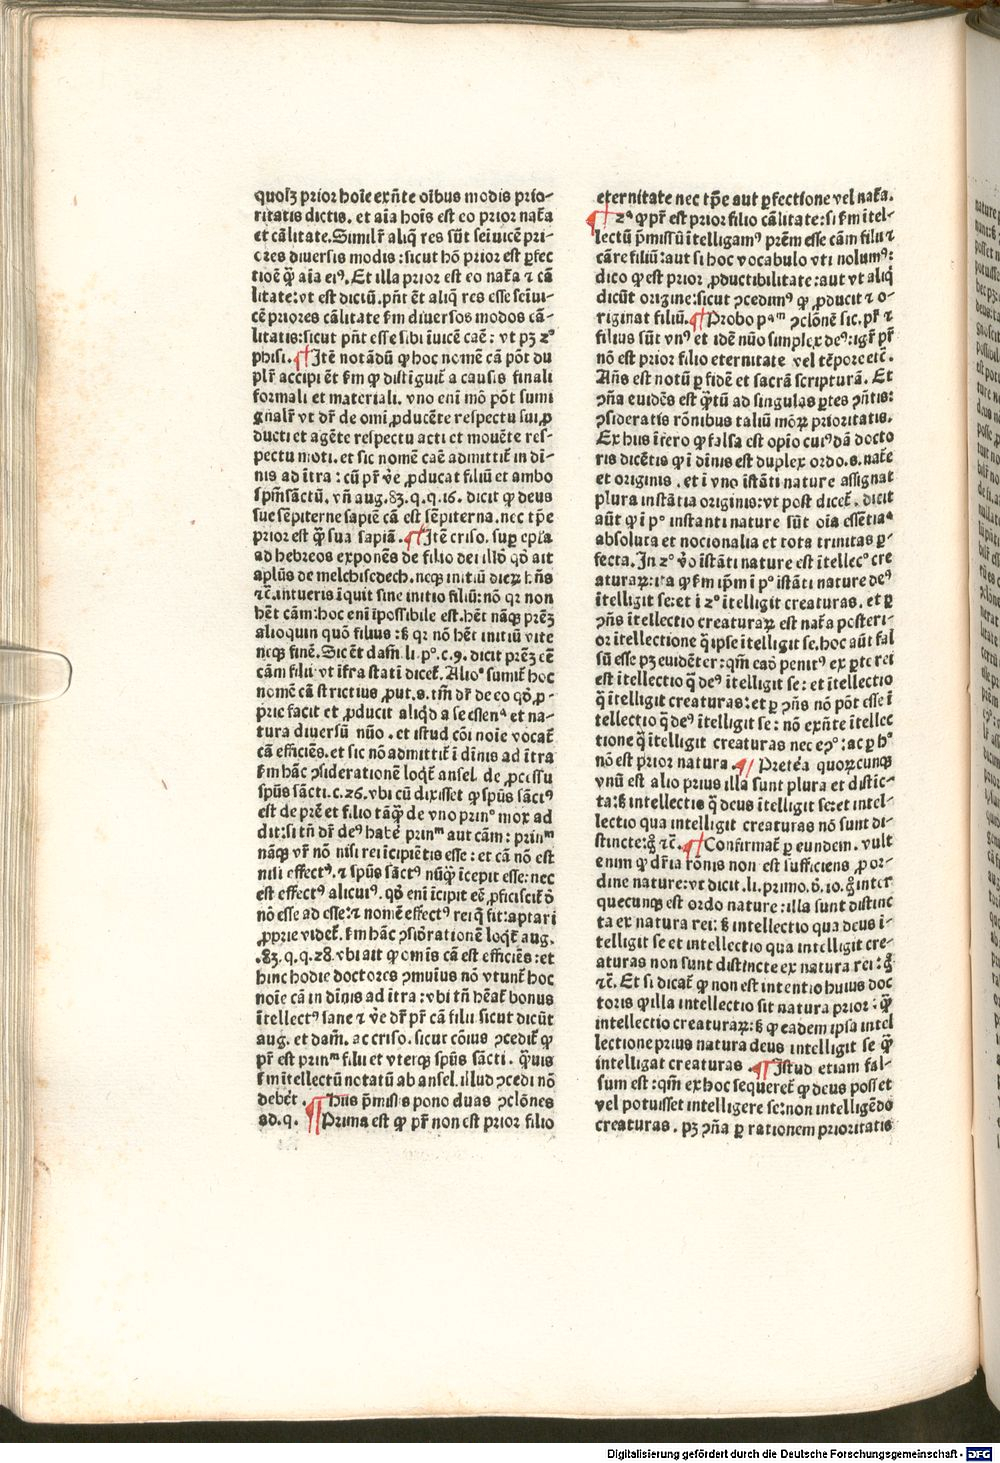 quoꝝ prior hoīe exn̄te oībus modis prio-
ritatis dictis. et aīa hoīs est eo prior nat̄a
et cālitate. Similr̄ aliq̄ res sūt seīuicē pri-
ores diuersis modis: sicut hō prior est ꝑfec
tiōe q̄ꝫ aīa eiꝰ. Et illa prior est eo nat̄a ⁊ cā
litate: vt est dictū. pn̄t ēt aliq̄ res esse seīui-
cē priores cālitate ẜm diuersos modos cā-
litatis: sicut pn̄t esse sibi īuicē cāe: vt pꝫ 2°
phisi. ¶ Itē notādū ꝙ hoc nomē cā pōt du
plr̄ accipi ēt ẜm ꝙ distīguit᷑ a causis finali
formali et materiali. vno enī mō pōt sumi
gn̄alr̄ vt dr̄ de omī ꝓducēte respectu sui ꝓ
ducti et agēte respectu acti et mouēte res-
pectu moti. et sic nomē cāe admittit᷑ in di-
nis ad ītra: cū pr̄ v̄e ꝓducat filiū et ambo
spm̄sāctū. vn̄ aug. 83. q. q. 16. dicit ꝙ deus
sue sēpiterne sapiē cā est sēpiterna. nec tp̄e
prior est q̄ꝫ sua sapiā. ¶ Itē criso. suꝑ epl̄a
ad hebreos exponēs de filio dei illd̄ qd̄ ait
aplūs de melchisedech. neqꝫ initiū dieꝝ hn̄s
⁊c̄. intueris īquit sine initio filiū: nō qꝛ non
hēt cām: hoc enī īpossibile est. hēt nāqꝫ prēꝫ
alioquin quō filius: sꝫ qꝛ nō hēt initiū vite
neqꝫ finē. Sic ēt dam̄. li. p°. c. 9. dicit prēꝫ eē
cām filii: vt īfra statī dicet᷑. Alioˢ sumit᷑ hoc
nomē cā strictius ꝓut. s. tm̄ dr̄ de eo qd̄ ꝓ-
prie facit et ꝓducit aliqd̄ a se essenᵃ et na-
tura diuersū nūo. et istud cōi noīe vocat᷑
cā efficiēs. et sic nō admittit᷑ ī dinis ad ītra
ẜm hāc ꝯsiderationē loqt᷑ ansel. de ꝓcessu
spūs sācti. c. 26. vbi cū dixisset ꝙ spūs sāctꝰ
est de prē et filio tāq̄ꝫ de vno prin° mox ad
dit: si tn̄ dr̄ deꝰ habē prinᵐ aut cām: prinᵐ
nāqꝫ vr̄ nō nisi rei īcipiētis esse: et cā nō est
nisi effectꝰ. ⁊ spūs sāctꝰ nūq̄ꝫ īcepit esse: nec
est effectꝰ alicuiꝰ. qd̄ enī īcipit eē ꝓficiscit᷑ d̄
nō esse ad esse: ⁊ nomē effectꝰ rei q̄ fit: aptari
ꝓprie videt᷑. ẜm hāc ꝯsid̄rationē loqt᷑ aug.
.83. q. q. 28. vbi ait ꝙ omīs cā est efficiēs: et
hinc hodie doctores ꝯmuīus nō vtunt᷑ hoc
noīe cā in dinis ad ītra: vbi tn̄ hēat᷑ bonus
ītellectꝰ sane ⁊ v̄e dr̄ pr̄ cā filii sicut dicūt
aug. et dam̄. ac criso. sicut cōius ꝯcedit᷑ ꝙ
pr̄ est prinᵐ filii et vterqꝫ spūs sācti. q̄ꝫuis
ẜm ītellectū notatū ab ansel. illud ꝯcedi nō
debēt. ¶ Hiis p̄missis pono duas ꝯclōnes
ad. q. ¶ Prima est ꝙ pr̄ non est prior filio
eternitate nec tp̄e aut ꝑfectione vel nat̄a.
¶ 2ᵃ ꝙ pr̄ est prior filio cālitate: si ẜm ītel-
lectū p̄missū ītelligamꝰ prēm esse cām filii ⁊
cāre filiū: aut si hoc vocabulo vti nolumꝰ:
dico ꝙ est prior ꝓductibilitate: aut vt aliq̄
dicūt origine: sicut ꝯcedimꝰ ꝙ ꝓducit ⁊ o-
riginat filiū. ¶ Probo pᵃᵐ ꝯclōnē sic. pr̄ ⁊
filius sūt vnꝰ et idē nūo simplex deꝰ: igr̄ pr̄
nō est prior filio eternitate vel tēpore etc̄.
Ans̄ est notū ꝑ fidē et sacrā scripturā. Et
ꝯn̄a euidēs est q̄ꝫtū ad singulas ꝑtes ꝯn̄tis:
ꝯsideratis rōnibus taliū moꝝ prioritatis.
Ex hiis īfero ꝙ falsa est opīo cuiꝰdā docto
ris dicētis ꝙ ī dīnis est duplex ordo. s. nat̄e
et originis. et ī vno īstāti nature assignat
plura instātia originis: vt post dicet᷑. dicit
aūt ꝙ ī p° instanti nature sūt oīa essētiaᵃ
absoluta et nocionalia et tota trinitas ꝑ-
fecta. In 2° v̄o īstāti nature est ītellec° cre
aturaꝝ: ita ꝙ ẜm ip̄m ī p° istāti nature deꝰ
ītelligit se: et ī 2° ītelligit creaturas. et ꝑ
ꝯn̄s ītellectio creaturaꝝ est nat̄a posteri-
or ītellectione q̄ ipse ītelligit se. hoc aūt fal
sū esse pꝫ euidēter: qm̄ eadē penitꝰ ex ꝑte rei
est ītellectio q̄ deꝰ ītelligit se: et ītellectio
q̄ ītelligit creaturas: et ꝑ ꝯn̄s nō pōt esse ī
tellectio q̄ deꝰ ītelligit se: nō exn̄te ītellec
tione q̄ ītelligit creaturas nec eꝯ°: ac ꝑ h°
nō est prior natura. ¶ Pretēa quoꝝcunqꝫ
vnū est alio prius illa sunt plura et distīc-
ta: sꝫ intellectio q̄ deus ītelligit se: et intel-
lectio qua intelligit creaturas nō sunt di-
stincte: g̊ ⁊c̄. ¶ Confirmat᷑ ꝑ eundem. vult
enim ꝙ dr̄īa rōnis non est sufficiens ꝓ or-
dine nature: vt dicit. li. primo. d̄. 10. g̊ inter
quecunqꝫ est ordo nature: illa sunt distinc
ta ex natura rei: sꝫ intellectio qua deus ī-
telligit se et intellectio qua intelligit cre-
aturas non sunt distincte ex natura rei: g̊
⁊c̄. Et si dicat᷑ ꝙ non est intentio huius doc
toris ꝙ illa intellectio sit natura prior: q̄ꝫ
intellectio creaturaꝝ: sꝫ ꝙ eadem ipsa intel
lectione prius natura deus intelligit se q̄ꝫ
intelligat creaturas. ¶ Istud etiam fal-
sum est: qm̄ ex hoc sequeret᷑ ꝙ deus posset
vel potuisset intelligere se: non intelligēdo
creaturas. pꝫ ꝯn̄a ꝑ rationem prioritatis
Digitalisierung gefördert durch die Deutsche Forschungsgemeinschaft - DFG